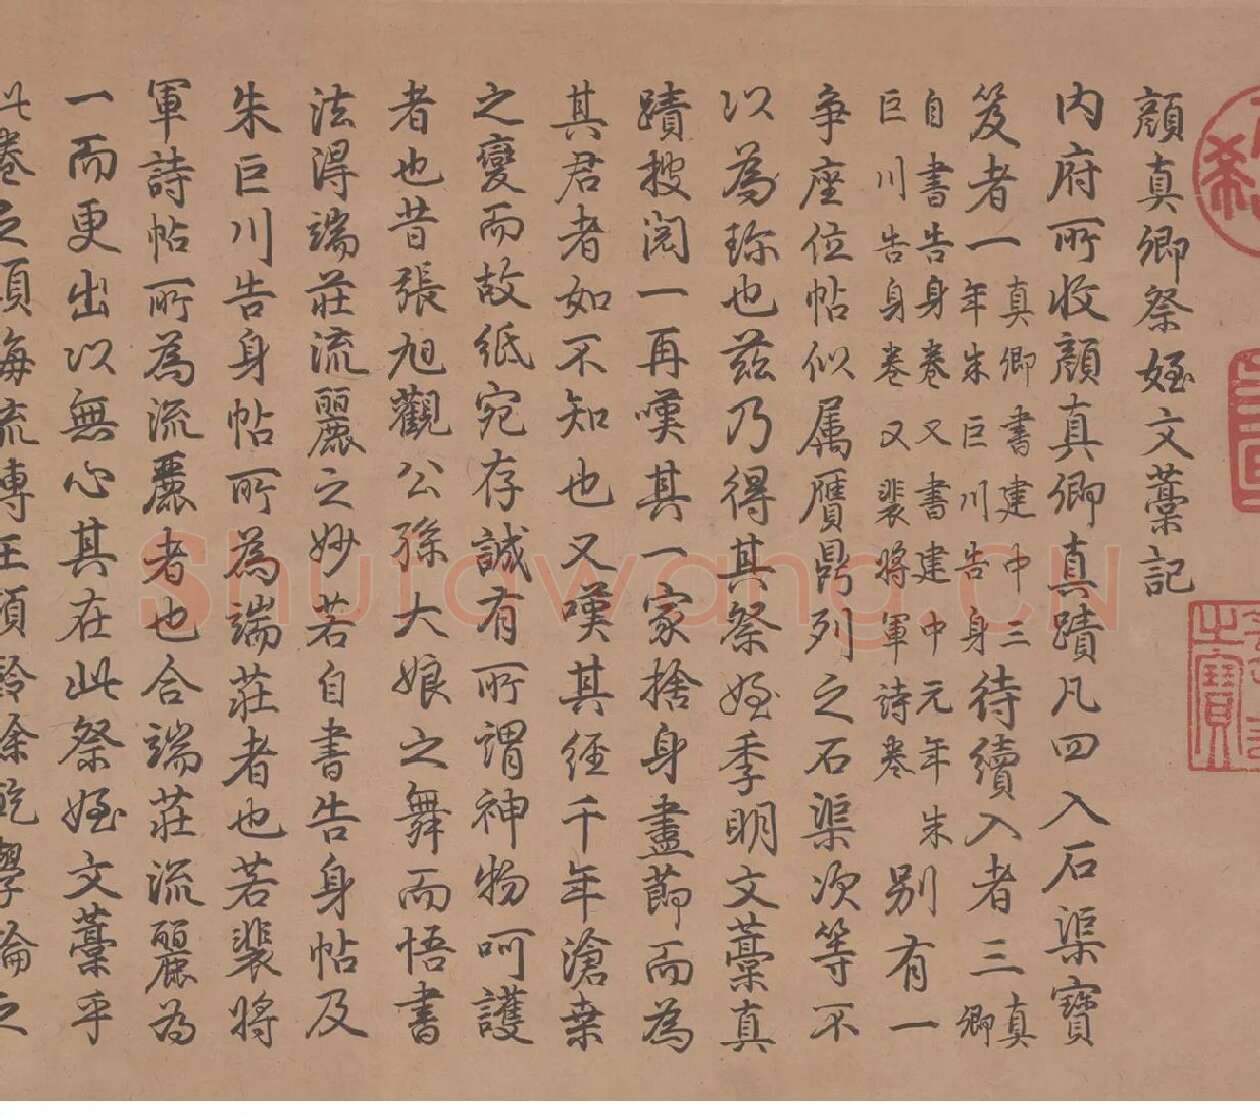 顏真卿祭姪文藁記
内府所收顏真卿真蹟凡四入石渠寶
笈者一真卿書建中三年朱巨川告身待續入者三真卿
自書告身卷又書建中元年朱巨川告身卷又裴將軍詩卷別有一
爭座位帖似属贋鼎列之石渠次等不
以為珎也兹乃得其祭姪季明文藁真
蹟披閱一再嘆其一家捨身盡節而為
其君者如不知也又嘆其經千年滄桒
之變而故紙宛存誠有所謂神物呵護
者也昔張旭觀公孫大娘之舞而悟書
法得端莊流麗之妙若自書告身帖及
朱巨川告身帖所為端莊者也若裴將
軍詩帖所為流麗者也合端莊流麗為
一而更出以無心其在此祭姪文藁乎
此卷之流傳王頊齡徐乾學論之
Shufawang.CN